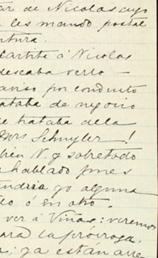 de Nicolas cuyo
les mando postal
cartita á Nicolas
deseaba verlo
por conducto
trataba de negocio
se trataba de la
Schuyler!
N. y sobretodo
hablado pues
yo alguna
ó en otro.
ver á Viñas; veremos
para la prórroga.
ya están